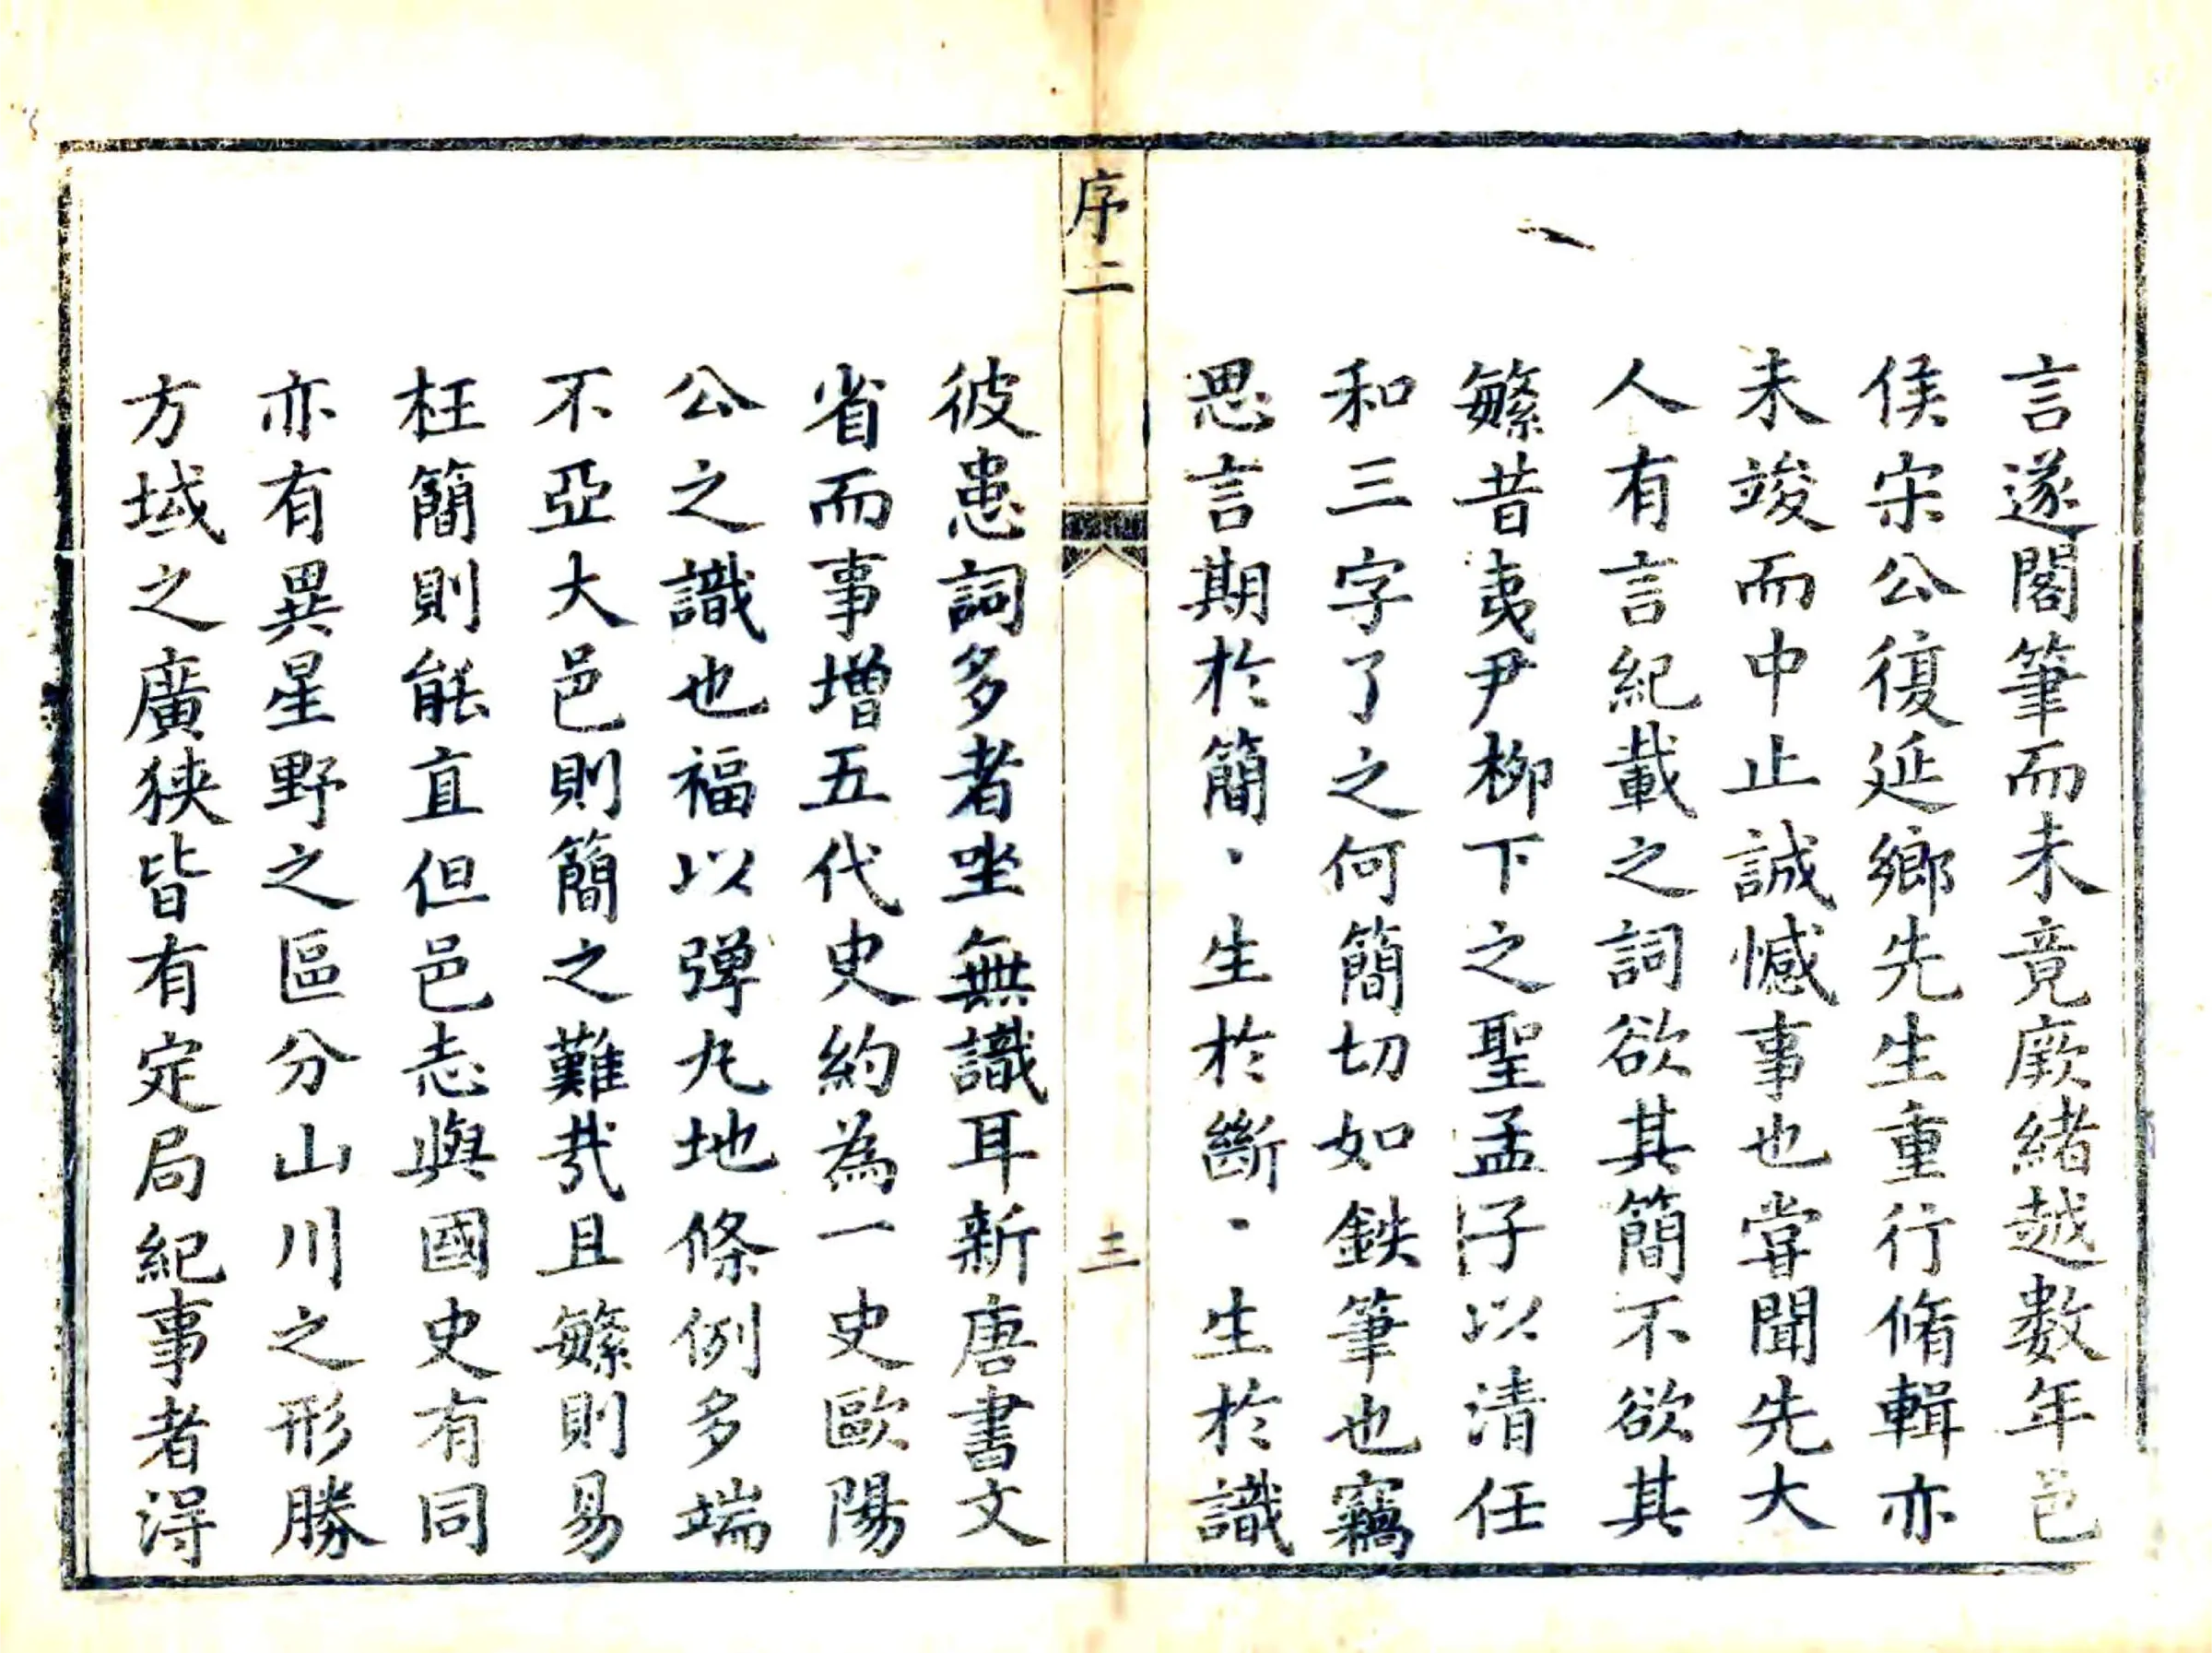 言遂閣筆而未竟厥緒越數年邑
侯宋公復延鄉先生重行脩輯亦
未竣而中止誠憾事也甞聞先大
人有言紀載之詞欲其簡不欲其
繁昔夷尹柳下之聖孟子以清任
和三字了之何簡切如鉄筆也竊
思言期於簡、生於斷、生於識
序二
三
彼患詞多者坐無識耳新唐書文
省而事增五代史約為一史歐陽
公之識也福以弹丸地條例多端
不亞大邑則簡之難㢤且繁則易
枉簡則能直但邑志與國史有同
亦有異星野之區分山川之形勝
方域之廣狹皆有定局紀事者得